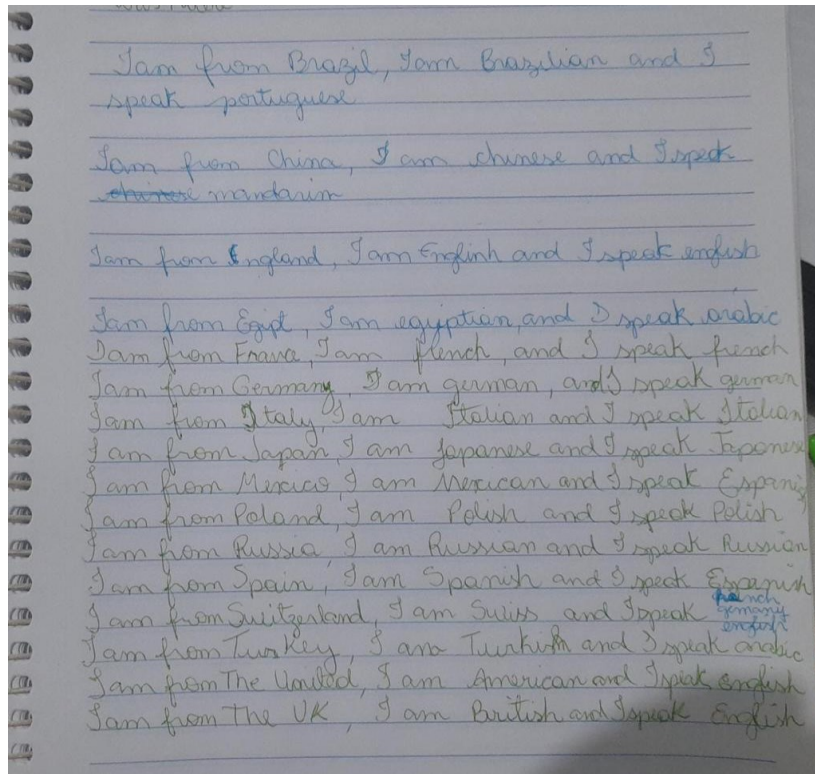 I am from Brazil, I am Brazilian and I
speak portuguese
I am from China, I am chinese and I speak
chinese mandarim
I am from England, I am English and I speak english
I am from Egipt, I am egyptian, and I speak arabic
I am from France, I am french, and I speak french
I am from Germany, I am german, and I speak german
I am from Italy, I am Italian and I speak Italian
I am from Japan, I am Japanese and I speak Japonese
I am from Mexico, I am Mexican and I speak Espanis
I am from Poland, I am Polish and I speak Polish
I am from Russia, I am Russian and I speak Russian
I am from Spain, I am Spanish and I speak Espanish
I am from Switzerland, I am Swiss and I speak french
gemany
english
I am from Turkey, I am Turkish and I speak arabic
I am from The United, I am American and I speak english
I am from The UK, I am British and I speak English